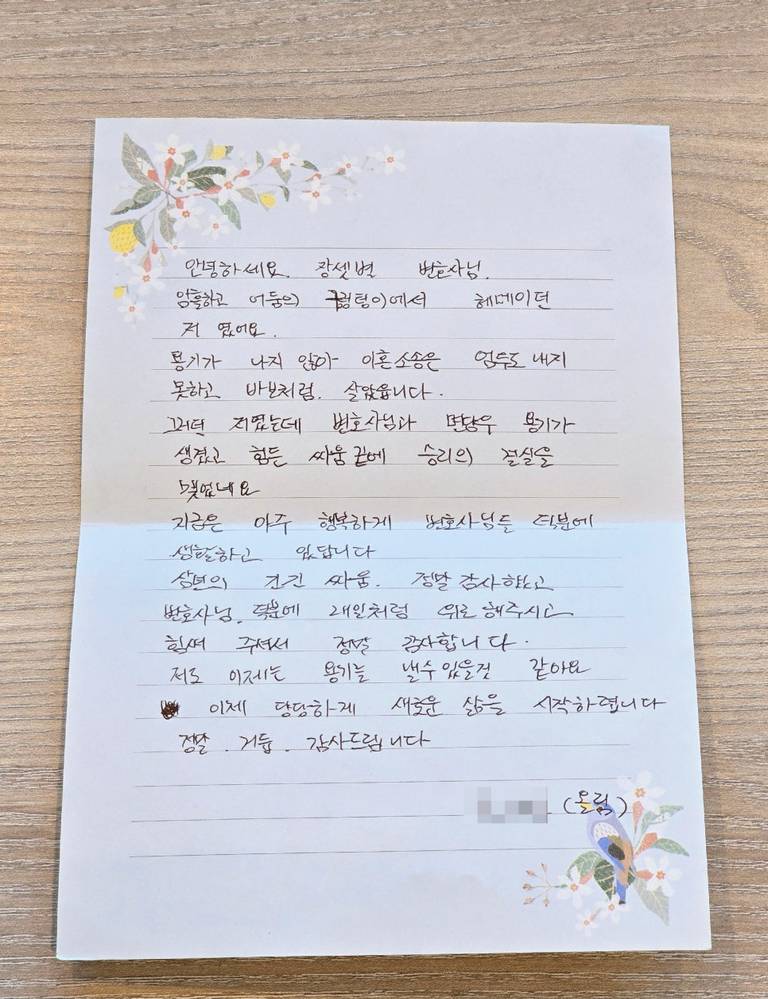 안녕하세요. 장샛별 변호사님.
암흘하고 어둠의 구렁텅이에서 헤메이던
저 였어요.
용기가 나지 않아 이혼소송은 엄두도 내지
못하고 바보처럼. 살았읍니다.
그러던 저였는데 변호사님과 면담후 용기가
생겼고 힘든 싸움끝에 승리의 결실을
맺었네요
지금은 아주 행복하게 변호사님들 덕분에
생활하고 있답니다
삼년의 긴긴 싸움. 정말 감사했고
변호사님. 덕분에 내일처럼 위로해주시고
힘써 주셔서 정말 감사합니다.
저도 이제는 용기를 낼수있을것 같아요
이제 당당하게 새로운 삶을 시작하렵니다
정말. 거듭. 감사드립니다
(올림)